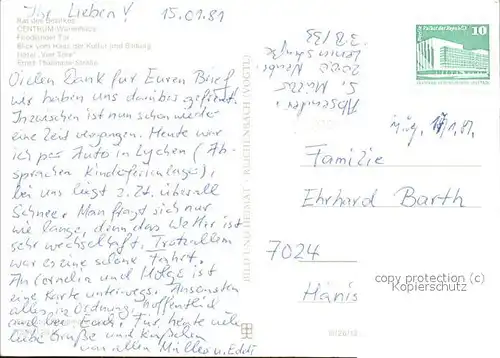 Ihr Lieben! 15.01.81
Rat des Bezirkes
CENTRUM-Warenhaus
Friedländer Tor
Blick vom Haus der Kultur und Bildung
Hotel „Vier Tore“
Ernst-Thälmann-Straße
Vielen Dank für Euren Brief,
wir haben uns darüber gefreut.
Inzwischen ist nun schon wieder
eine Zeit vergangen. Heute war
ich per Auto in Lychen (Ab-
sprachen Kinderferienlager),
bei uns liegt z. Zt. überall
Schnee. Man fragt sich nur
wie lange, denn das Wetter ist
sehr wechselhaft. Trotzallem
war es eine schöne Fahrt.
An Cornelia und Holge ist
eine Karte unterwegs. Ansonsten
alles in Ordnung, hoffentlich
auch bei Euch. Für heute viele
liebe Grüße und
von allen Müller u.
BILD UND HEIMAT REICHENBACH (VOGTL)
Absender:
S. Müller
2000
Kultur der DDR
10
Familie
Ehrhard Barth
7024
copyright protection (c)
Kopierschutz